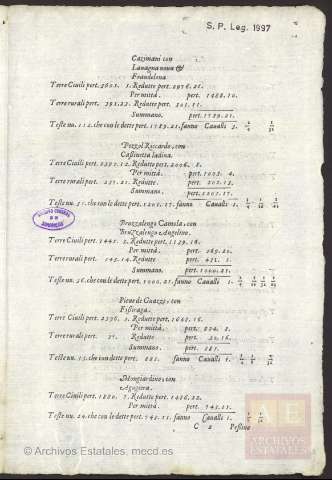 S. P. Leg. 1997
Cazimani con
Lauagna noua &
Fraudolena
Terre Ciuili pert. 3603. 1. Redutte pert. 2976. 21.
Per mittà. pert. 1488. 10.
Terre rurali pert. 391. 23. Redutte pert. 301. 11.
Summano. pert. 1789. 21.
Teste nu. 112. che con le dette pert. 1789. 21. fanno Caualli 3.
Pozzol Riccardo, con
Cassinetta ladina.
Terre Ciuili pert. 2397. 12. Redutte pert. 2006. 8.
Per mittà. pert. 1003. 4.
Terre rurali pert. 271. 21. Redutte. pert. 202. 13.
Summano. pert. 1205. 17.
Teste nu. 51. che con le dette pert. 1205. 17. fanno Caualli 1.
Bruzzalengo Camola, con
Bruzzalengo Angelino.
Terre Ciuili pert. 1441. 2. Redutte pert. 1139. 18.
Per mittà. pert. 569. 21.
Terre rurali pert. 545. 14. Redutte. pert. 431. 1.
Summano. pert. 1000. 21.
Teste nu. 56. che con le dette pert. 1000. 21. fanno Caualli 1.
Pieue di Guazzo, con
Fissiraga.
Terre Ciuili pert. 2396. 3. Redutte pert. 1608. 16.
Per mittà. pert. 804. 8.
Terre rurali pert. 97. Redutte pert. 20. 16.
Summano. pert. 881.
Teste nu. 15. che con le dette pert. 881. fanno Caualli 1.
Mongiardino, con
Agugiera.
Terre Ciuili pert. 1880. 7. Redutte pert. 1486. 22.
Per mittà. pert. 743. 11.
Teste nu. 24. che con le dette pert. 743. 11. fanno Caualli 1.
C 2 Pessino
AE
ARCHIVOS
ESTATALES
© Archivos Estatales, mecd.es